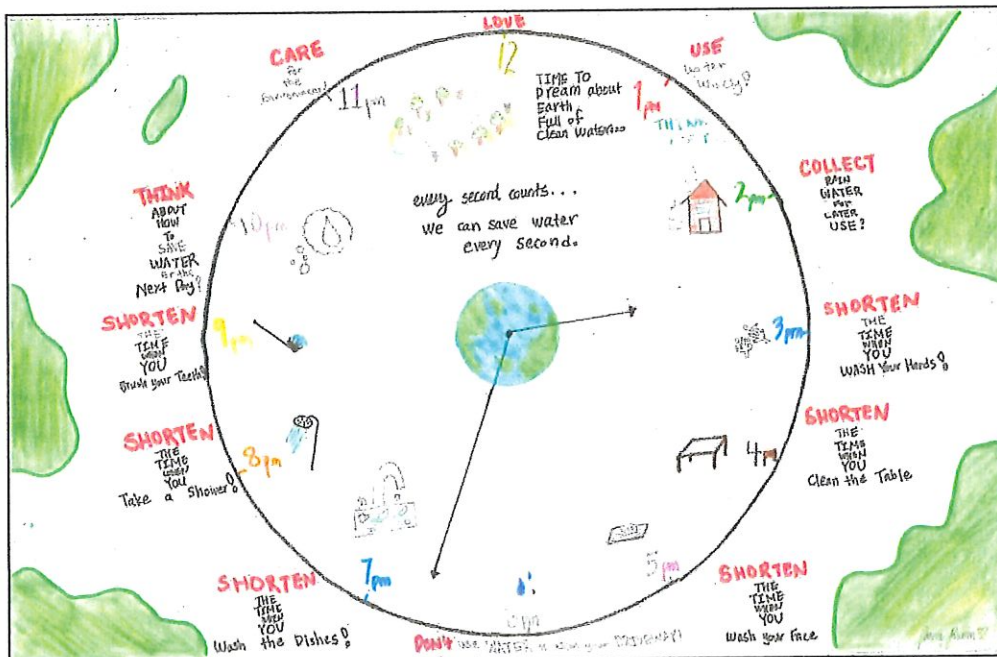 LOVE
12
TIME TO
Dream about
Earth
Full of
Clean Water...
USE
Water
Wisely!
1pm
THINK
COLLECT
RAIN
WATER
FOR
LATER
USE!
2pm
SHORTEN
THE
TIME
WHEN
YOU
WASH Your Hands!
3pm
SHORTEN
THE
TIME
WHEN
YOU
Clean the Table
4pm
SHORTEN
THE
TIME
WHEN
YOU
Wash your Face
5pm
DON'T use WATER to wash your DRIVEWAY!
SHORTEN
THE
TIME
WHEN
YOU
Wash the Dishes!
7pm
SHORTEN
THE
TIME
WHEN
YOU
Take a Shower!
8pm
SHORTEN
THE
TIME
WHEN
YOU
Brush your Teeth!
9pm
THINK
ABOUT
HOW
TO
SAVE
WATER
for the
Next Day!
10pm
CARE
for
the
Environment
11pm
every second counts...
we can save water
every second.